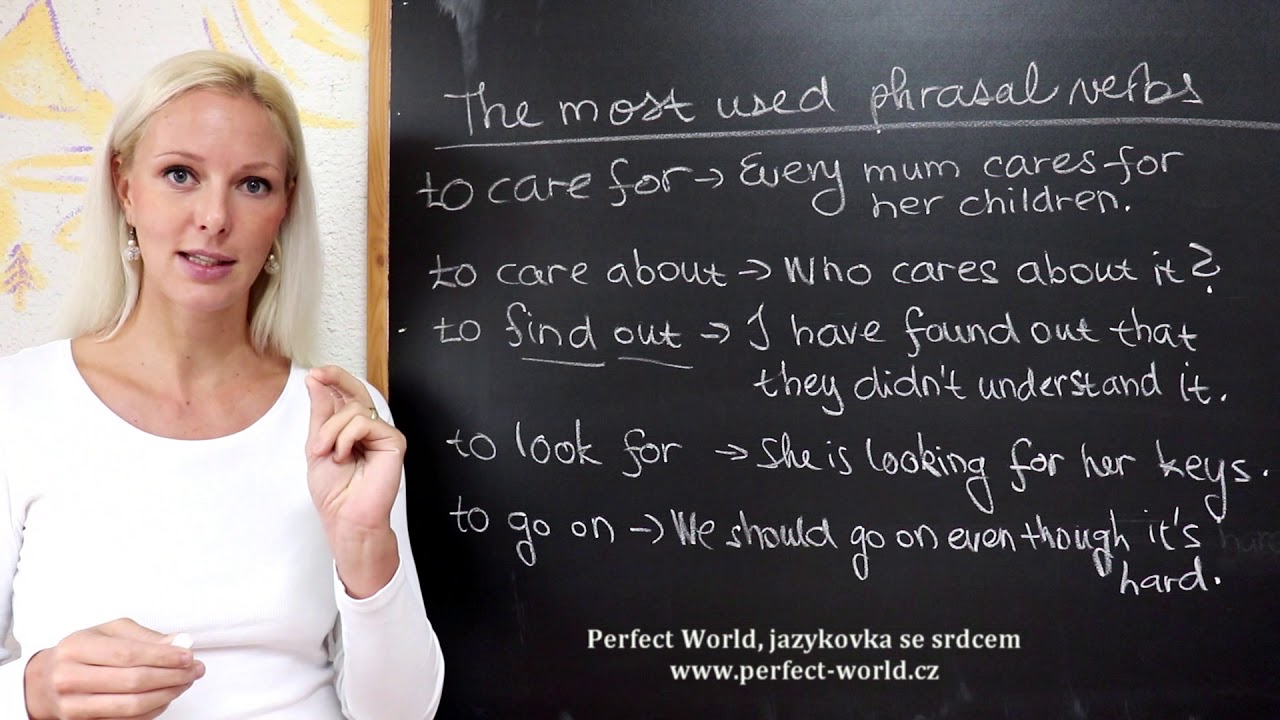 The most used phrasal verbs
to care for → Every mum cares for
her children.
to care about → Who cares about it?
to find out → I have found out that
they didn't understand it.
to look for → She is looking for her keys.
to go on → We should go on even though it's hard
hard.
Perfect World, jazykovka se srdcem
www.perfect-world.cz